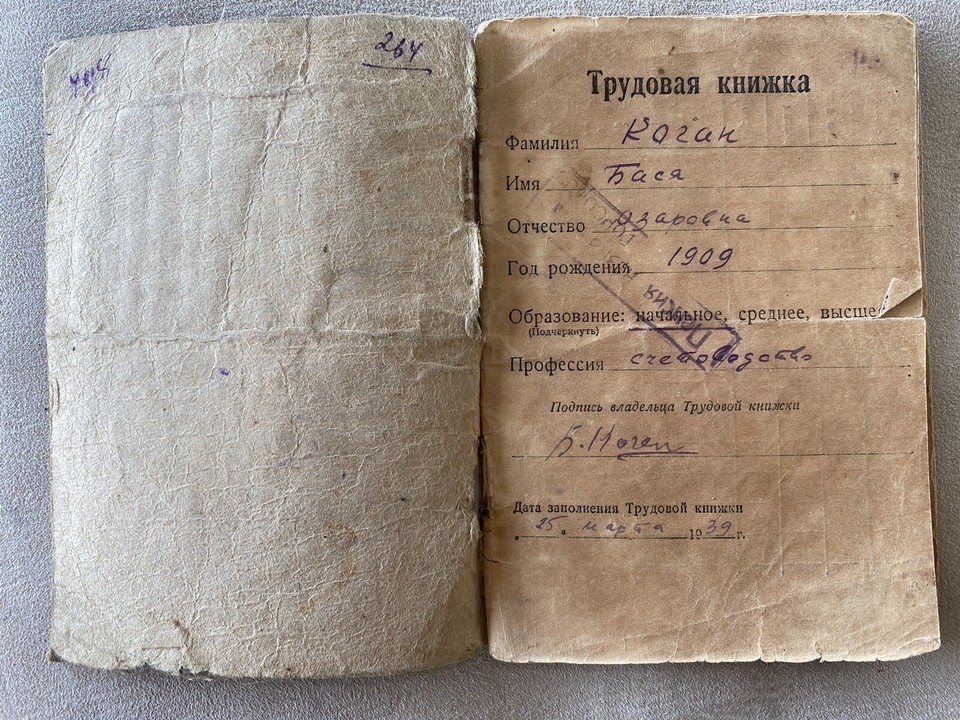 264
Трудовая книжка
Фамилия Коган
Имя Бася
Отчество Озаровна
Год рождения 1909
Образование: начальное, среднее, высше
(Подчеркнуть)
Профессия счетоводство
Подпись владельца Трудовой книжки
Б. Коган
Дата заполнения Трудовой книжки
„25“ марта 1939 г.